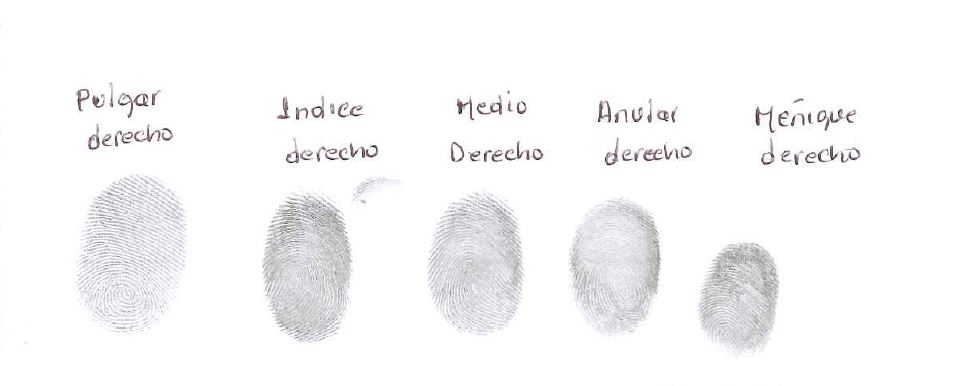 Pulgar
derecho
Indice
derecho
Medio
Derecho
Anular
derecho
Meñique
derecho